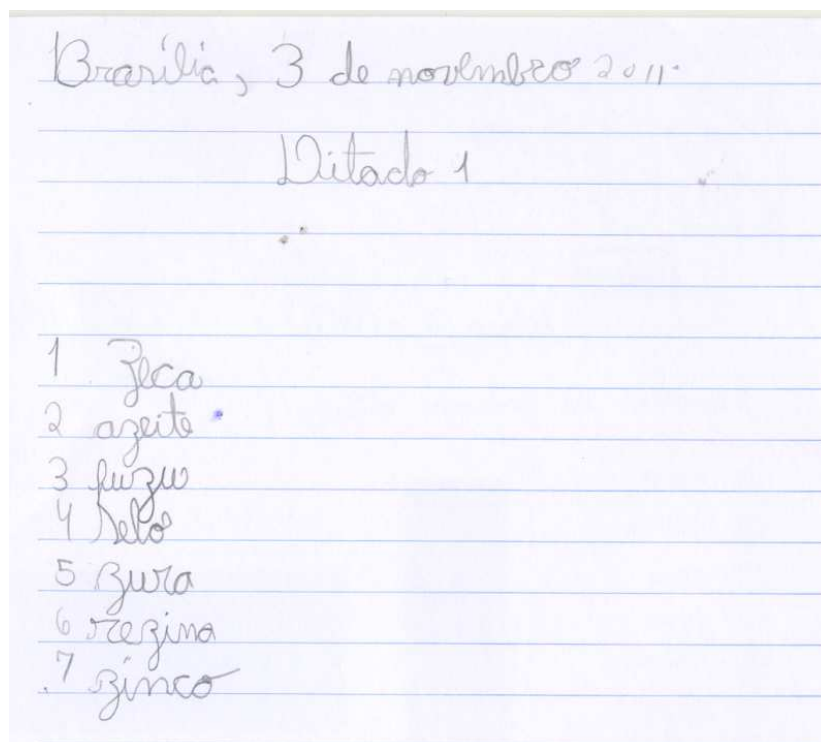 Brasília, 3 de novembro 2011.
Ditado 1
1 Zeca
2 azeite
3 fuzu
4 Selo
5 zura
6 rezina
7 zinco